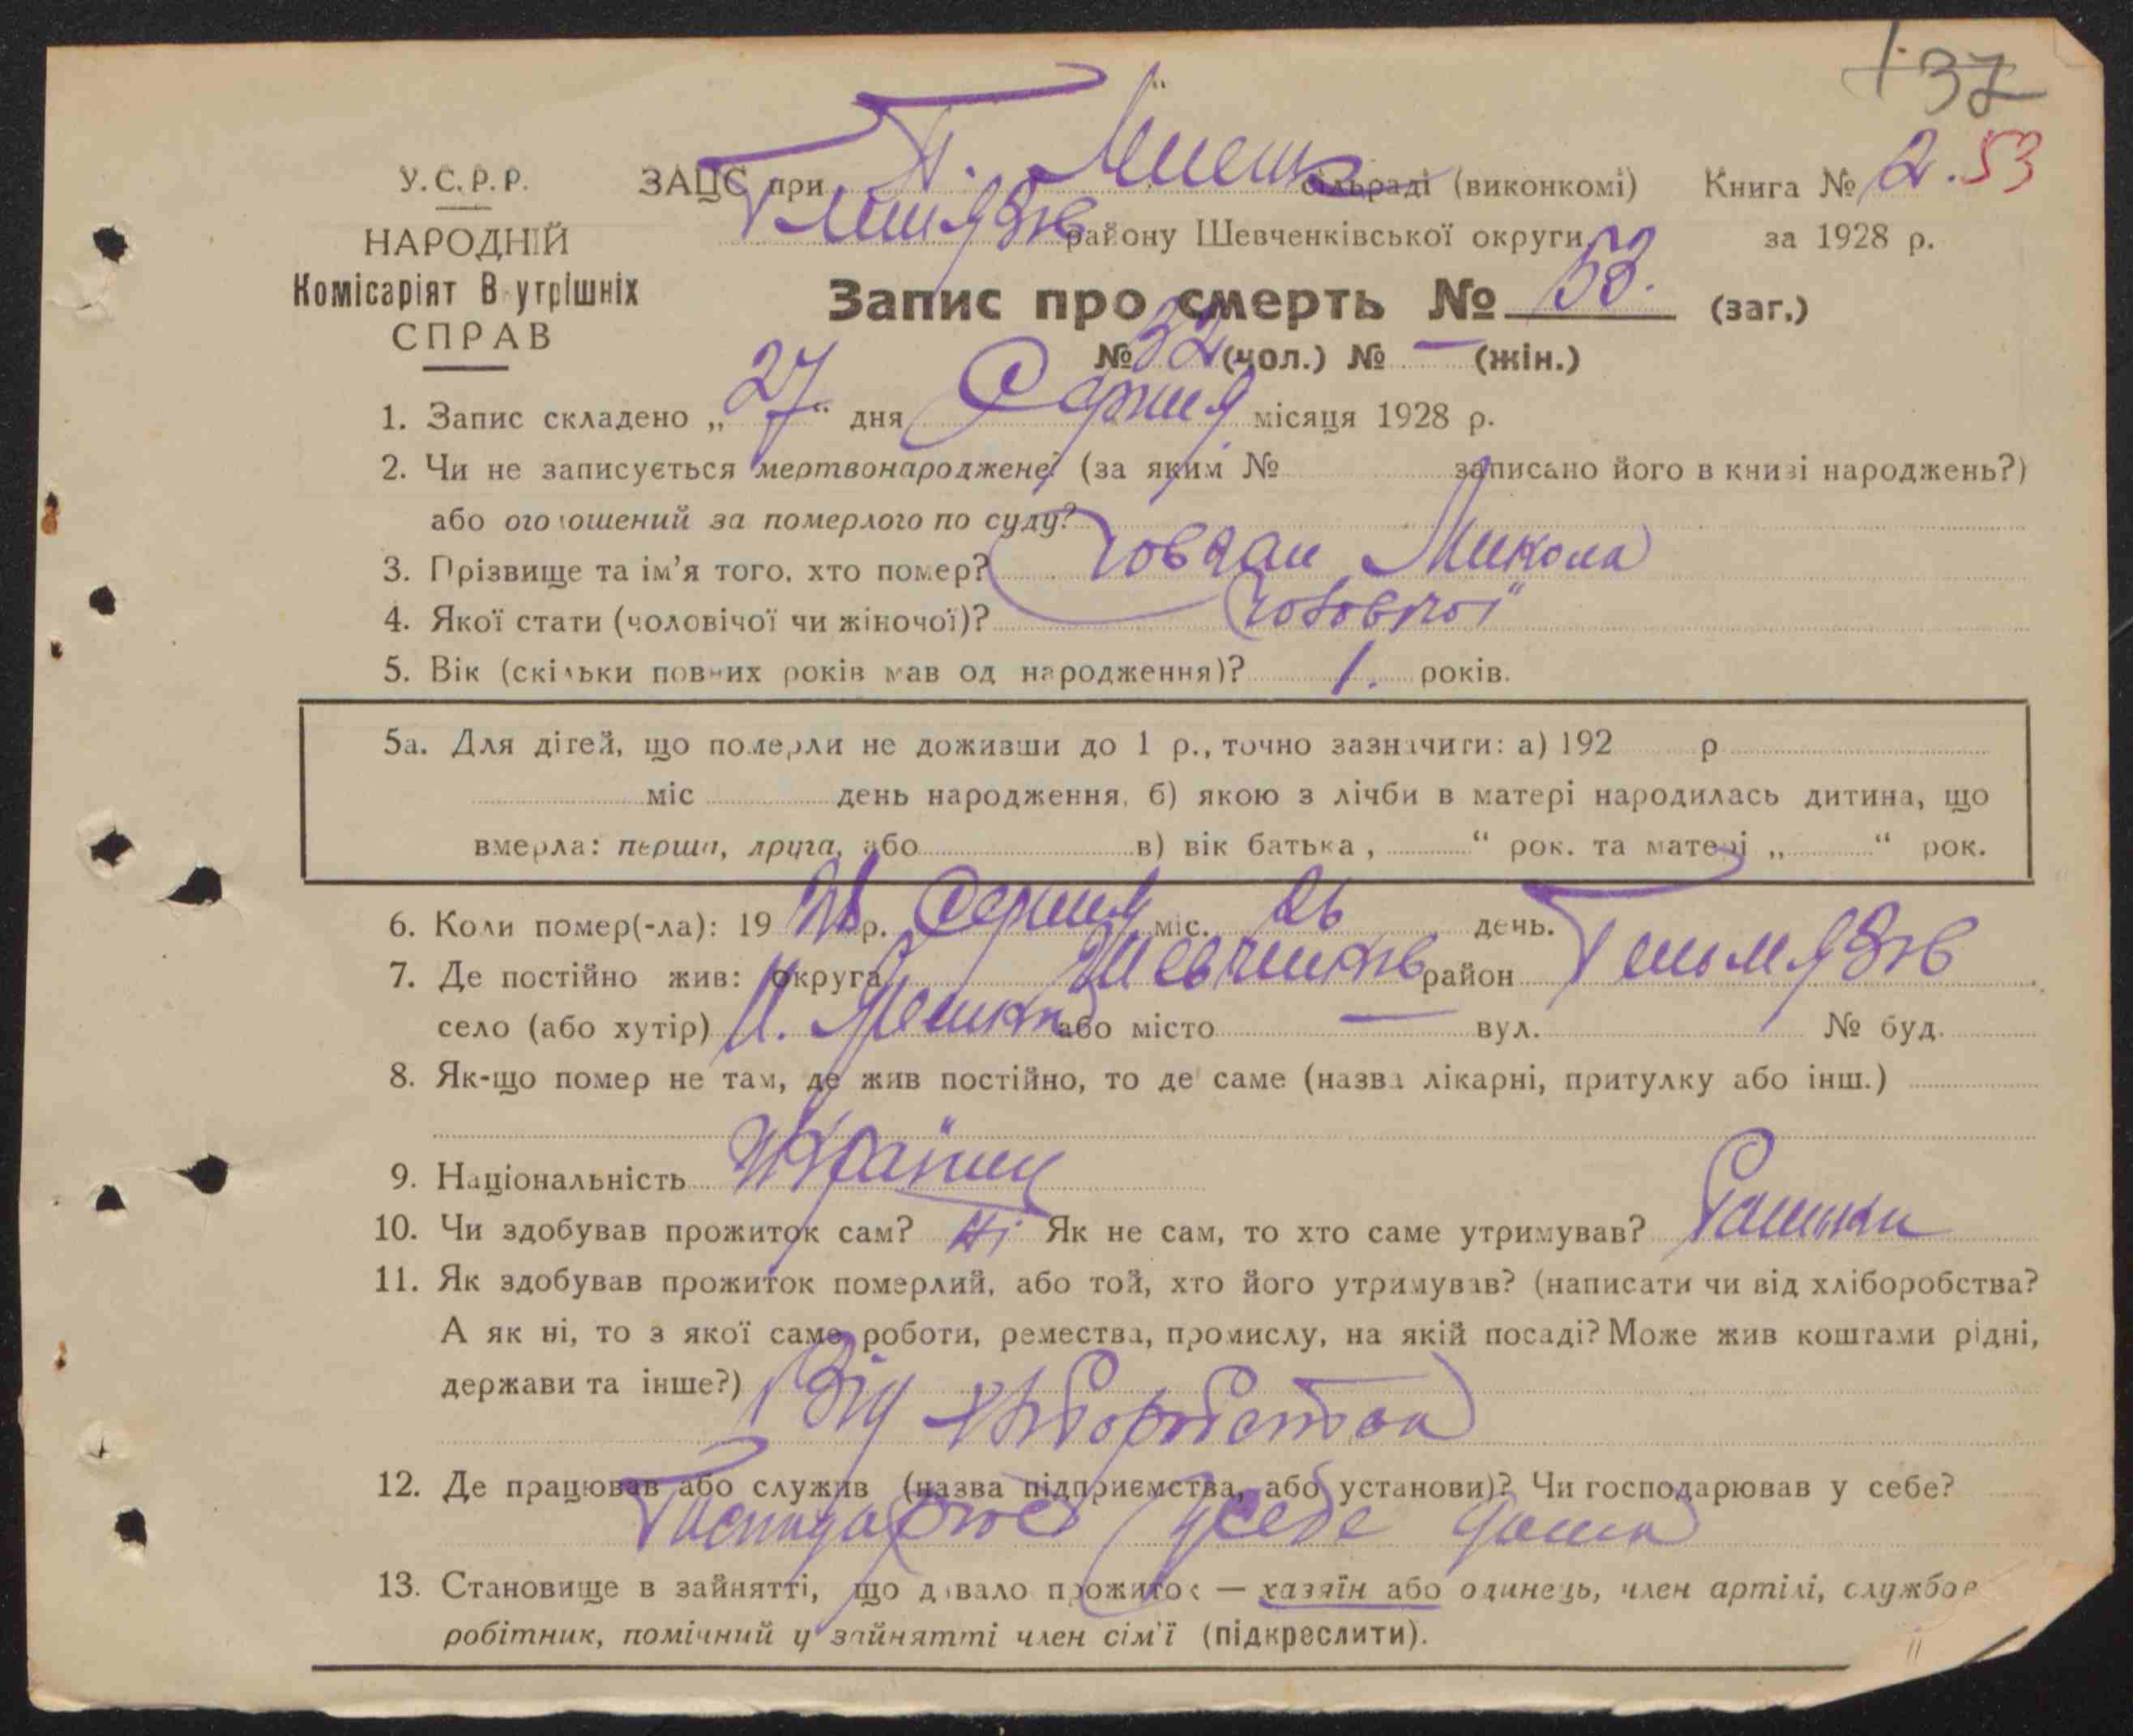 137
У.С.Р.Р. ЗАЦС при сільраді (виконкомі) Книга № 2. 53
НАРОДНІЙ району Шевченківської округи за 1928 р.
Комісаріят Внутрішніх
СПРАВ
Запис про смерть № 53. (заг.)
№ 32 (чол.) № — (жін.)
1. Запис складено „27“ дня Серпня місяця 1928 р.
2. Чи не записується мертвонароджене (за яким № записано його в книзі народжень?)
або оголошений за померлого по суду?
3. Прізвище та ім'я того, хто помер? Човган Микола
4. Якої стати (чоловічої чи жіночої)? Чоловічої
5. Вік (скільки повних років мав од народження)? 1. років.
5а. Для дітей, що померли не доживши до 1 р., точно зазначити: а) 192 р
міс день народження, б) якою з лічби в матері народилась дитина, що
вмерла: перша, друга, або в) вік батька , “ рок. та матері „ “ рок.
6. Коли помер(-ла): 19 28 р. Серпня міс. 26 день.
7. Де постійно жив: округа Шевченків район Гельмязів
село (або хутір) або місто — вул. № буд.
8. Як-що помер не там, де жив постійно, то де саме (назва лікарні, притулку або інш.)
9. Національність Україн
10. Чи здобував прожиток сам? Ні Як не сам, то хто саме утримував?
11. Як здобував прожиток померлий, або той, хто його утримував? (написати чи від хліборобства?
А як ні, то з якої саме роботи, ремества, промислу, на якій посаді? Може жив коштами рідні,
держави та інше?) Від хліборобства
12. Де працював або служив (назва підприємства, або установи)? Чи господарював у себе?
Господарює у себе дома
13. Становище в зайнятті, що давало прожиток — хазяїн або одинець, член артілі, службов
робітник, помічний у зайнятті член сім'ї (підкреслити).